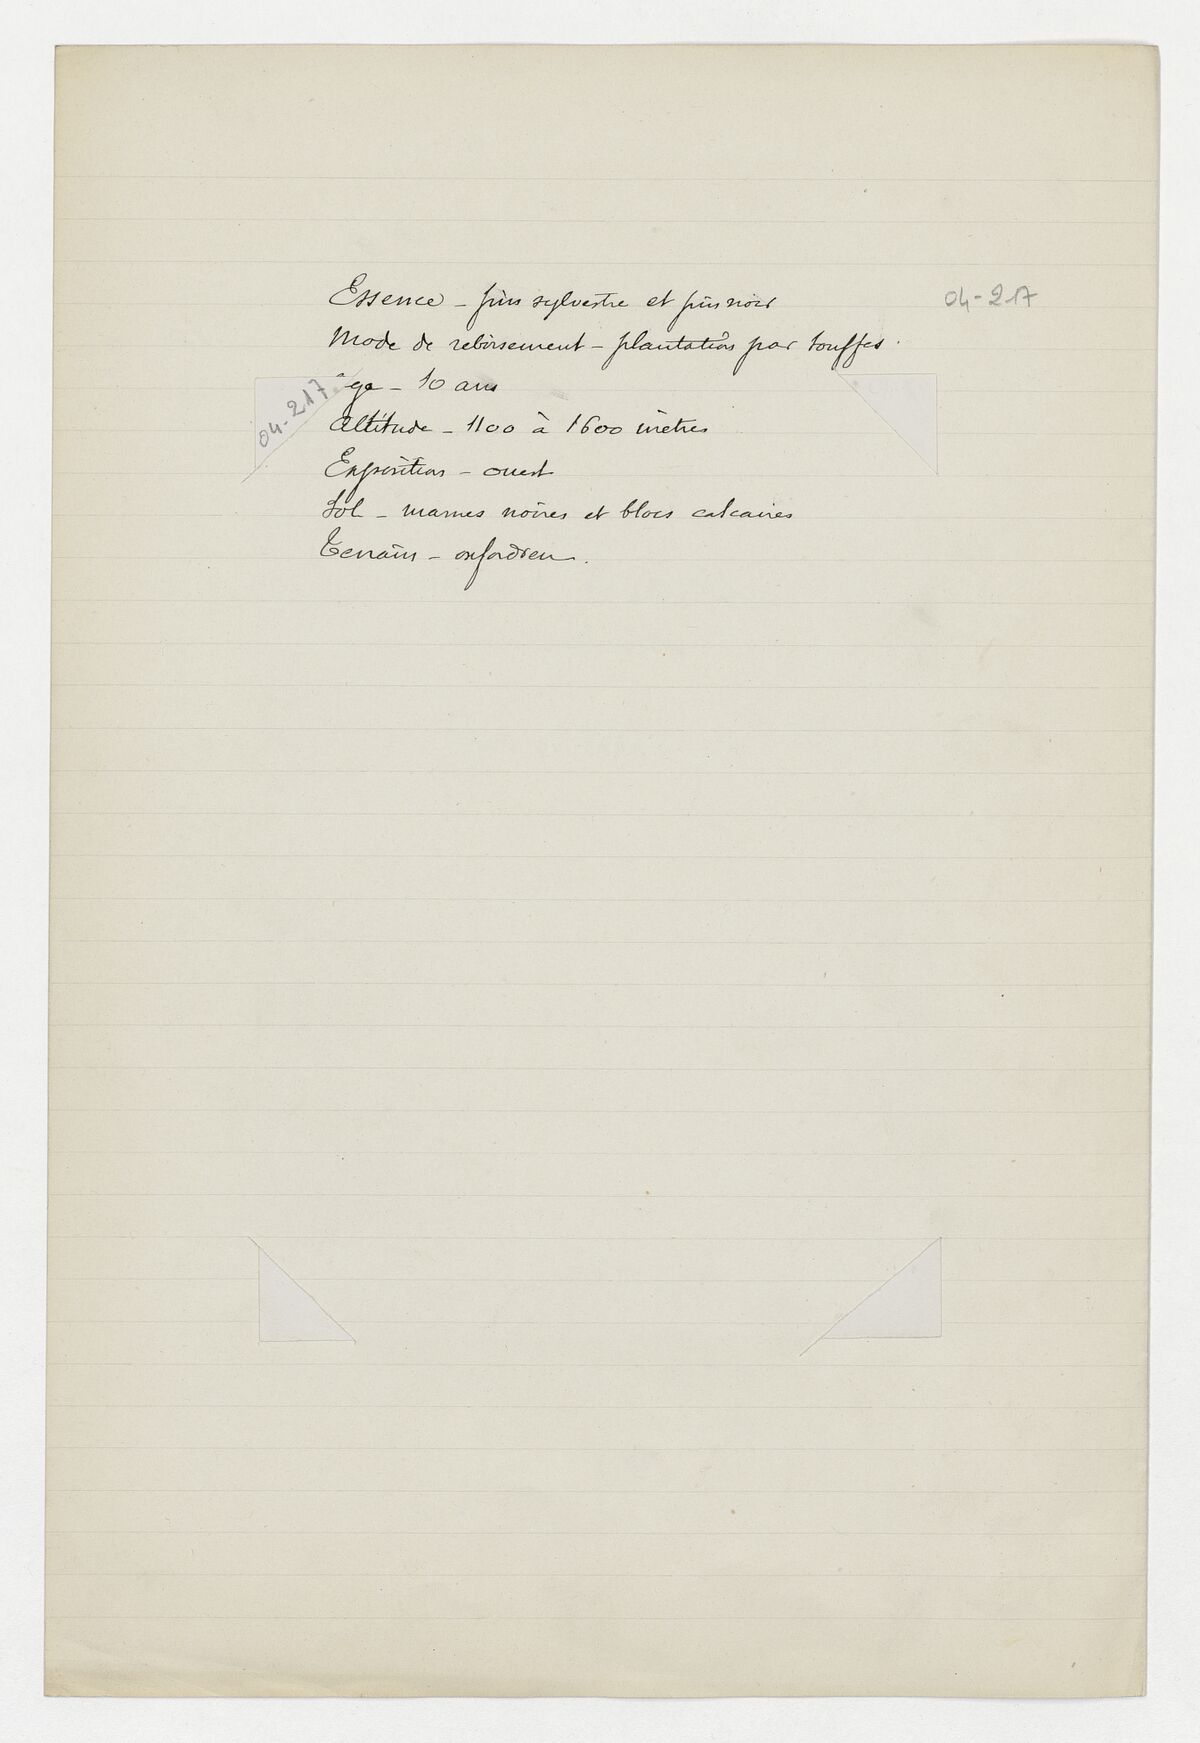 Essence - pin sylvestre et pin noir
04-217
Mode de reboisement - plantations par touffes.
âge - 10 ans
04-217
Altitude - 1100 à 1600 mètres
Exposition - ouest
Sol - marnes noires et blocs calcaires
Terrain - oxfordien.